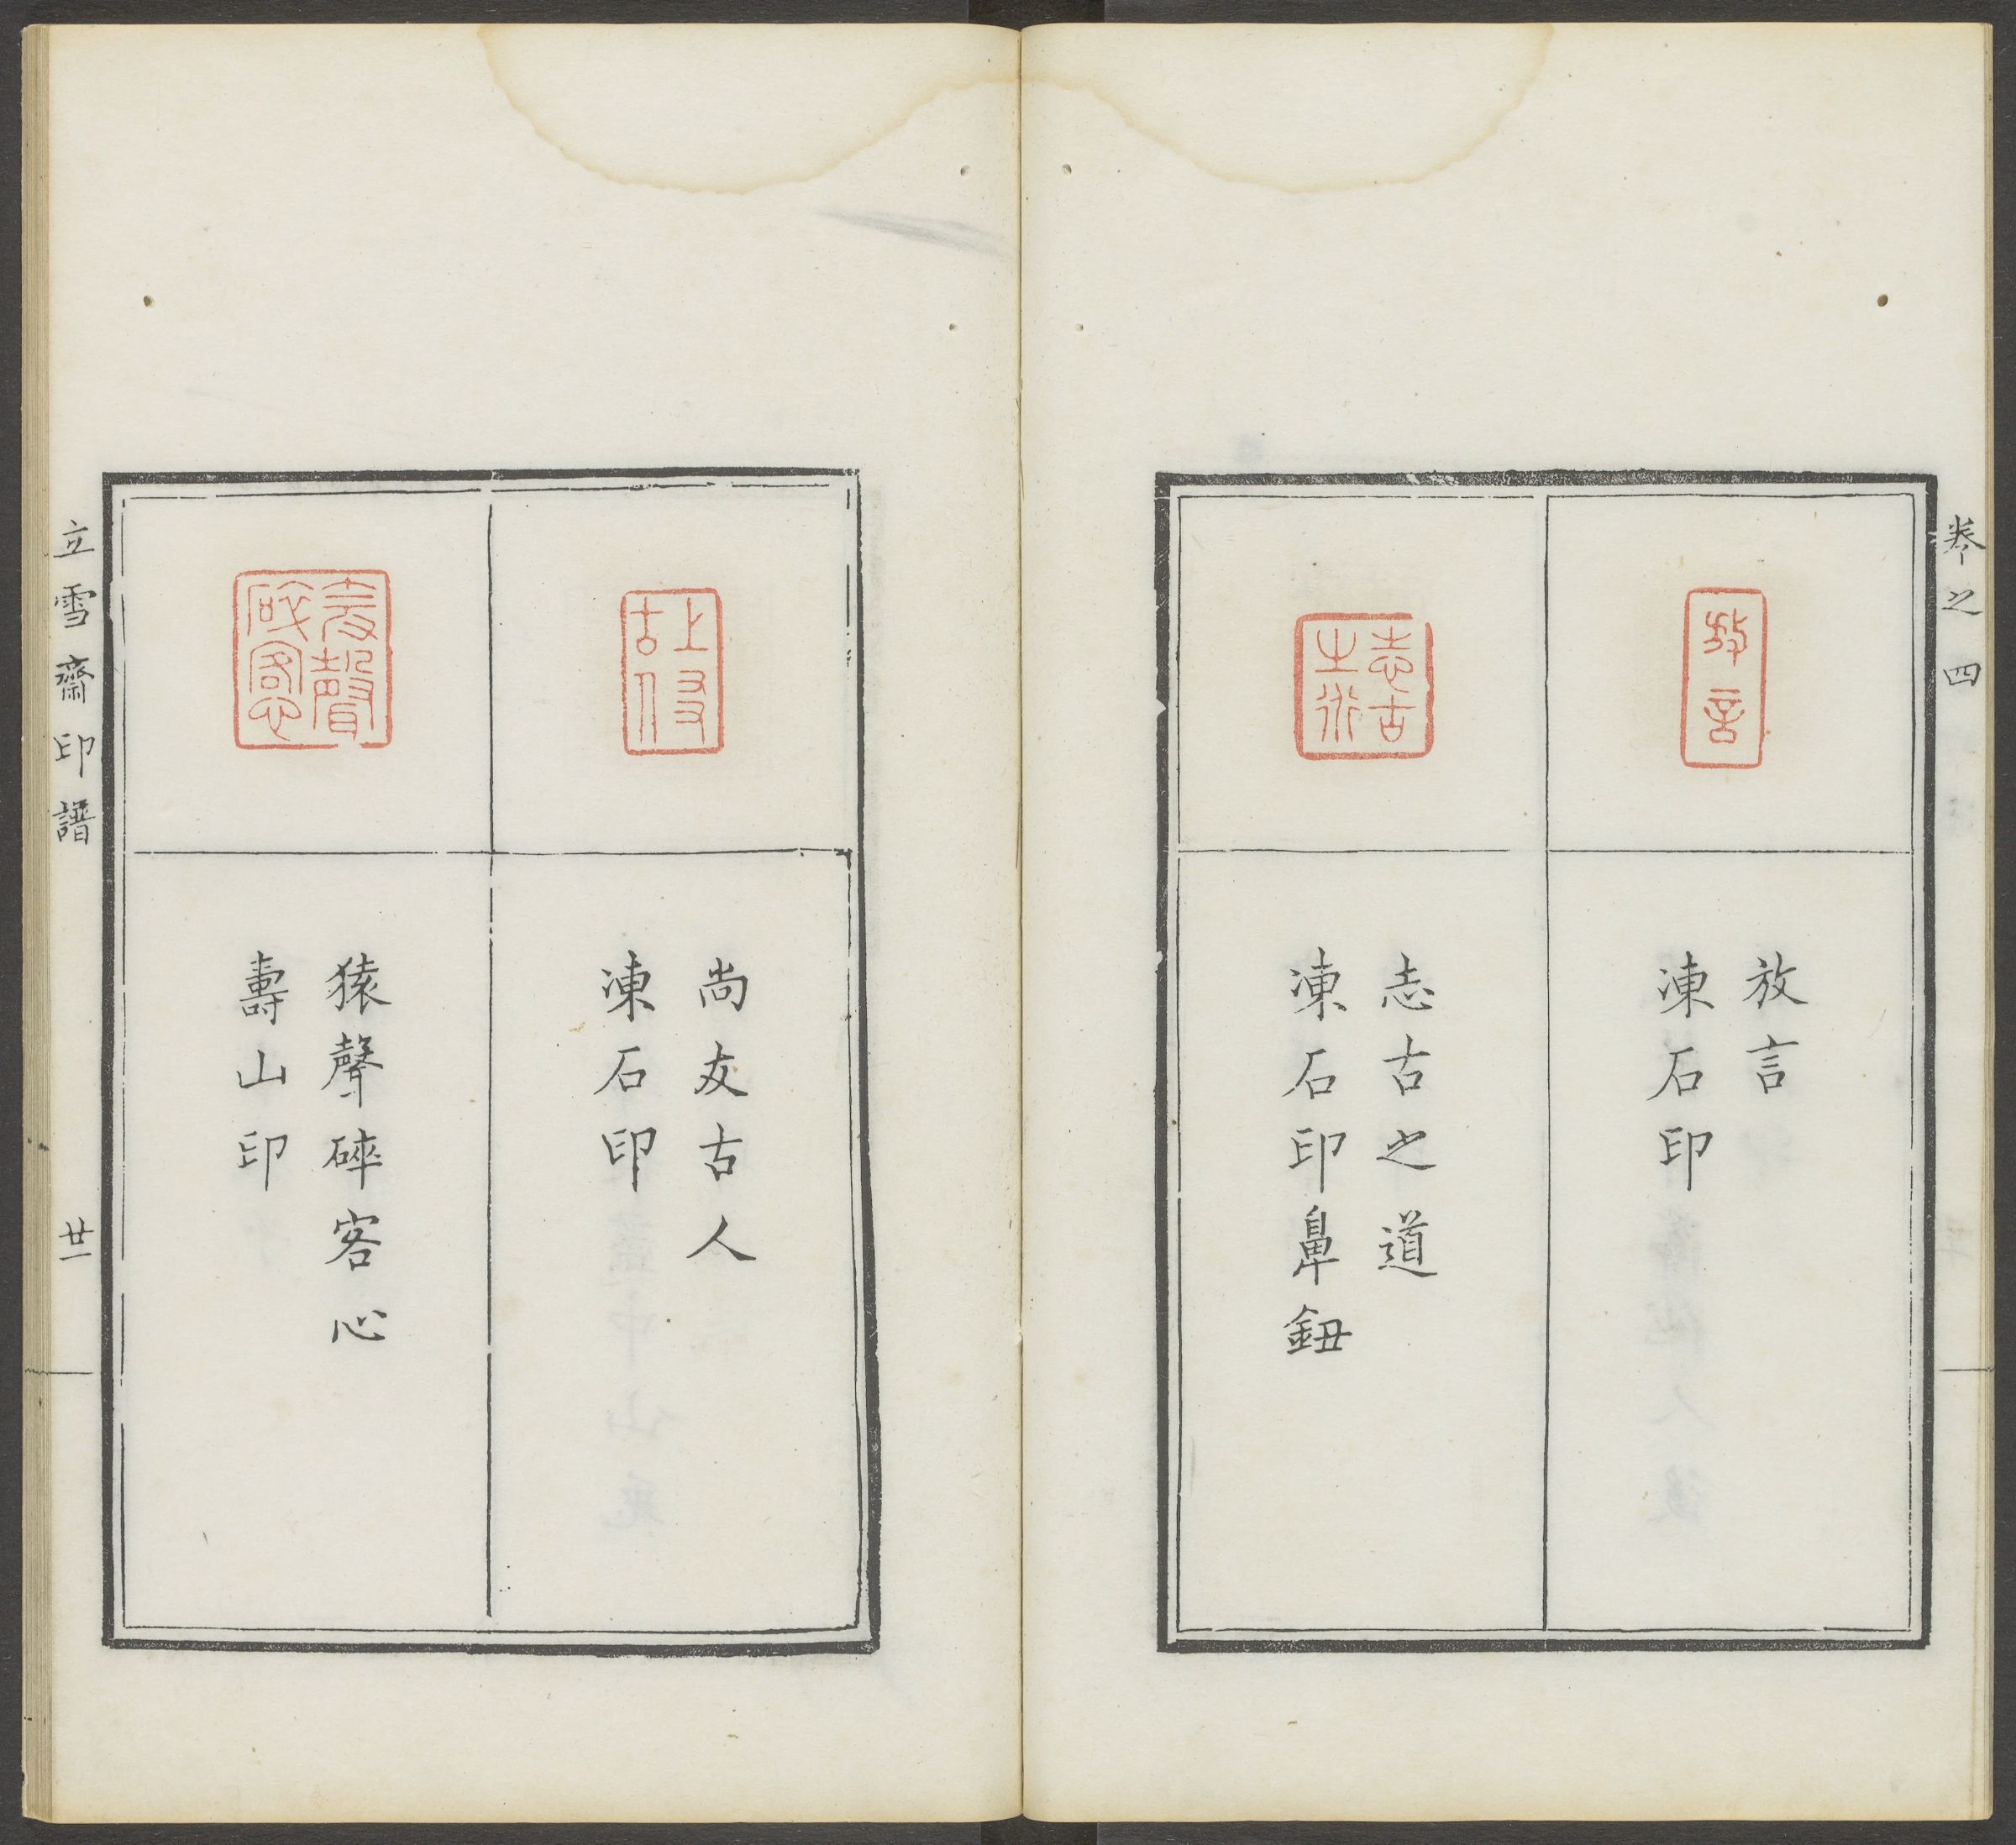 卷之四
放言
凍石印
志古之道
凍石印鼻鈕
尚友古人
凍石印
猿聲碎客心
壽山印
立雪齋印譜
廿一